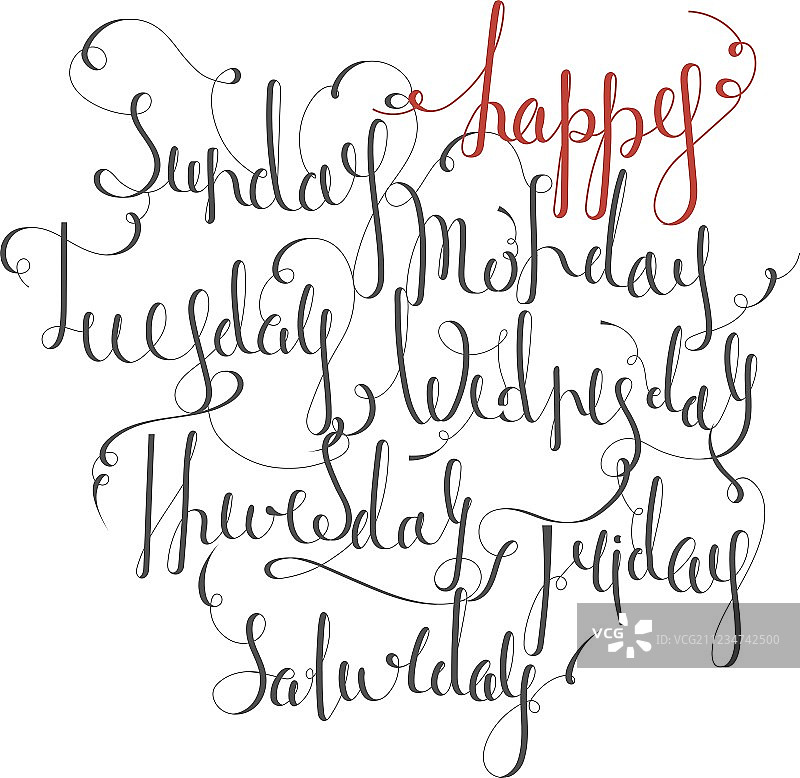 happy
Sunday
Monday
Tuesday
Wednesday
Thursday
Friday
Saturday
VCG VCG211234742500
ID: VCG211234742500